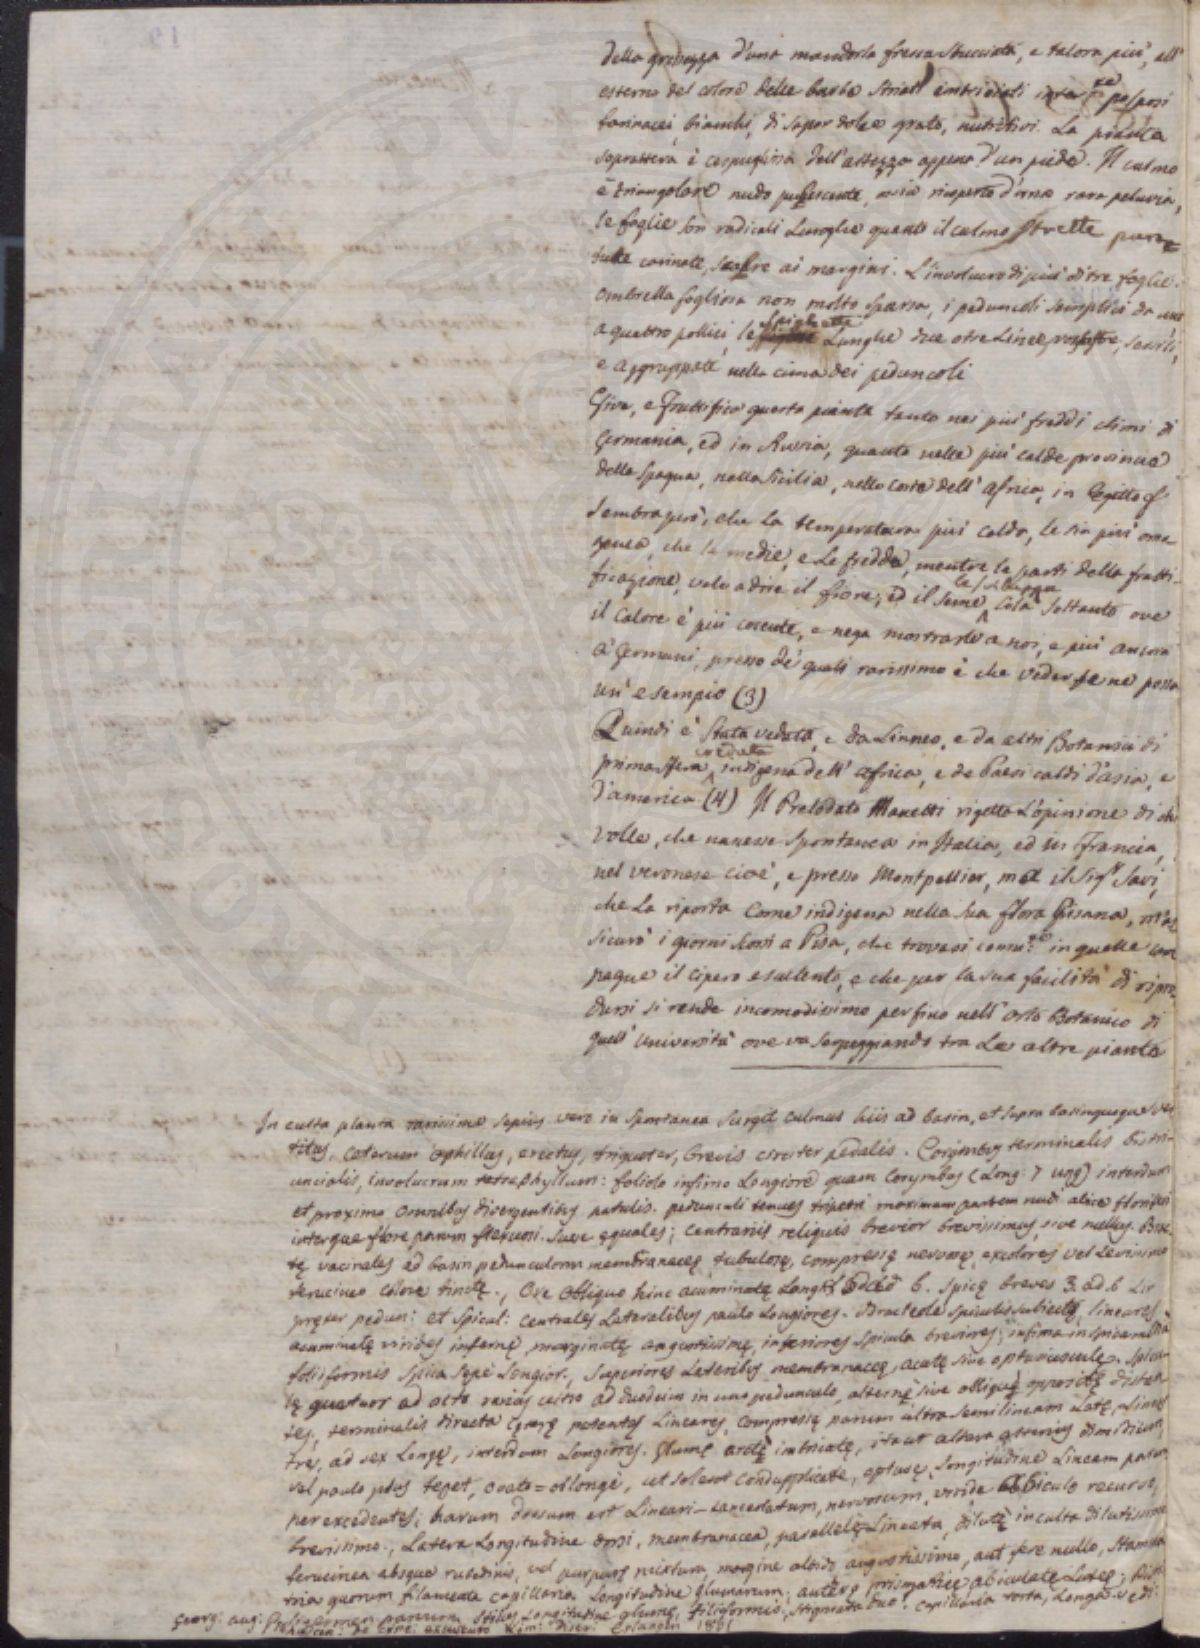 della grossezza d'una mandorla fresca sbucciata, e talora più, all'
esterno del colore delle barbe striati embriciati
farinacei, bianchi, di sapor dolce grato, nutritivi. La pianta
soprattera è cespugliosa dell'altezza appena d'un piede. Il culmo
è triangolare nudo pubescente, ossia ricoperto d'una rara peluvia,
le foglie son radicali Lunghe quanto il culmo strette
tutte carinate, scabre ai margini. L'involucro di più di tre foglie.
Ombrella fogliosa non molto sparsa, i peduncoli semplici da uno
a quattro pollici, le Spighette Lunghe due o tre Linee, sessili,
e aggruppate nella cima dei peduncoli
Vive, e Fruttifica questa pianta tanto nei più freddi climi di
Germania, ed in Russia, quanto nelle più calde provincie
della Spagna, nella Sicilia, nelle coste dell'Africa, in Egitto
Sembra però, che La temperatura più calda, le sia più omo
genea, che le medie, e Le fredde, mentre le parti della frutti-
ficazione, vale a dire il fiore, ed il seme, le sviluppa colà soltanto ove
il Calore è più cocente, e nega mostrarle a noi, e più ancora
a' Germani, presso de' quali rarissimo è che veder se ne possa
un'esempio (3)
Quindi è stata veduta, e da Linneo, e da altri Botanici di
prima sfera creduta indigena dell'Africa, e de Paesi caldi d'asia, e
d'america (4) Il Prelodato Manetti rigetta L'opinione di chi
volle, che nascesse spontanea in Italia, ed in Francia,
nel veronese cioè, e presso Montpellier, ma il Sig.r Savi,
che La riporta come indigena nella sua flora Pisana, m'as
sicurò i giorni scorsi a Pisa, che trovasi in quelle cam
pagne il cipero esculento, e che per la sua facilità di ripro
dursi si rende incomodissimo perfino nell'Orto Botanico di
quell'Università ove va serpeggiando tra Le altre piante
In culta planta rarissime sepius vero in spontanea surgit culmus huis ad basin, et supra basin
titus, ceterum aphillus, erectus, triqueter, brevis circiter pedalis. Corymbus terminalis
uncialis, involucrum tetraphyllum: foliolo infimo Longiore quam Corymbus (Long: 7 ung) interdum
et proximo omnibus divergentibus patulis. pedunculi tenues maximam partem nudi
interque flore parum flexuosi. equales; centrariis reliquis brevior brevissimus, sive nullus.
tę vacinales ad basin pedunculorum membranacę, tubulosę, compressę nervosę, excolores vel Levissimo
ferucineo colore tinctę., Ore obliquo hinc acuminatę Longit 6. Spicę breves 3 ad 6 Lin
pręter pedun: et Spical: centrales Lateralibus paulo Longiores. Bracteole spiculis subiectę, lineares,
acuminatę virides infernę marginatę angustissimę, inferiores spicula breviores; infima
foliiformis spica sepe Longior, Superiores Lateribus membranacę, acutę sive optusiusculę.
lę quatuor ad octo ad duodecim in uno peduncolo, alternę sive oblique
tes, terminalis directa patentes Lineares, compressę parum ultra semilineam Latę, Lineas
tres, ad sex Longę, interdum Longiores. Glumę arctę imbricatę, ita ut altera alterius dimidium,
vel paulo plus teget, ovato=oblonge, ut solent conduplicate, optusę, Longitudine Lineam parum
per excedentes; harum dorsum est Lineari-Lanceolatum, nervosum, viride recurso
brevissimo., Latera Longitudine dorsi, membranacea, parallelę Lineata, dilutę in culta dilutissime
ferucinea absque rutedinis, vel purpurę mixtum, margine albido angustissimo, aut fere nullo, Stamina
tria quorum filamenta capillaria Longitudine glumarum; anterę prismaticę Lutee;
germen parvum, Stilus Longitudine glumę, filiformis, Stigmata duo, capillaria torta, Longa
Georg: aug: de Erlangen 1801